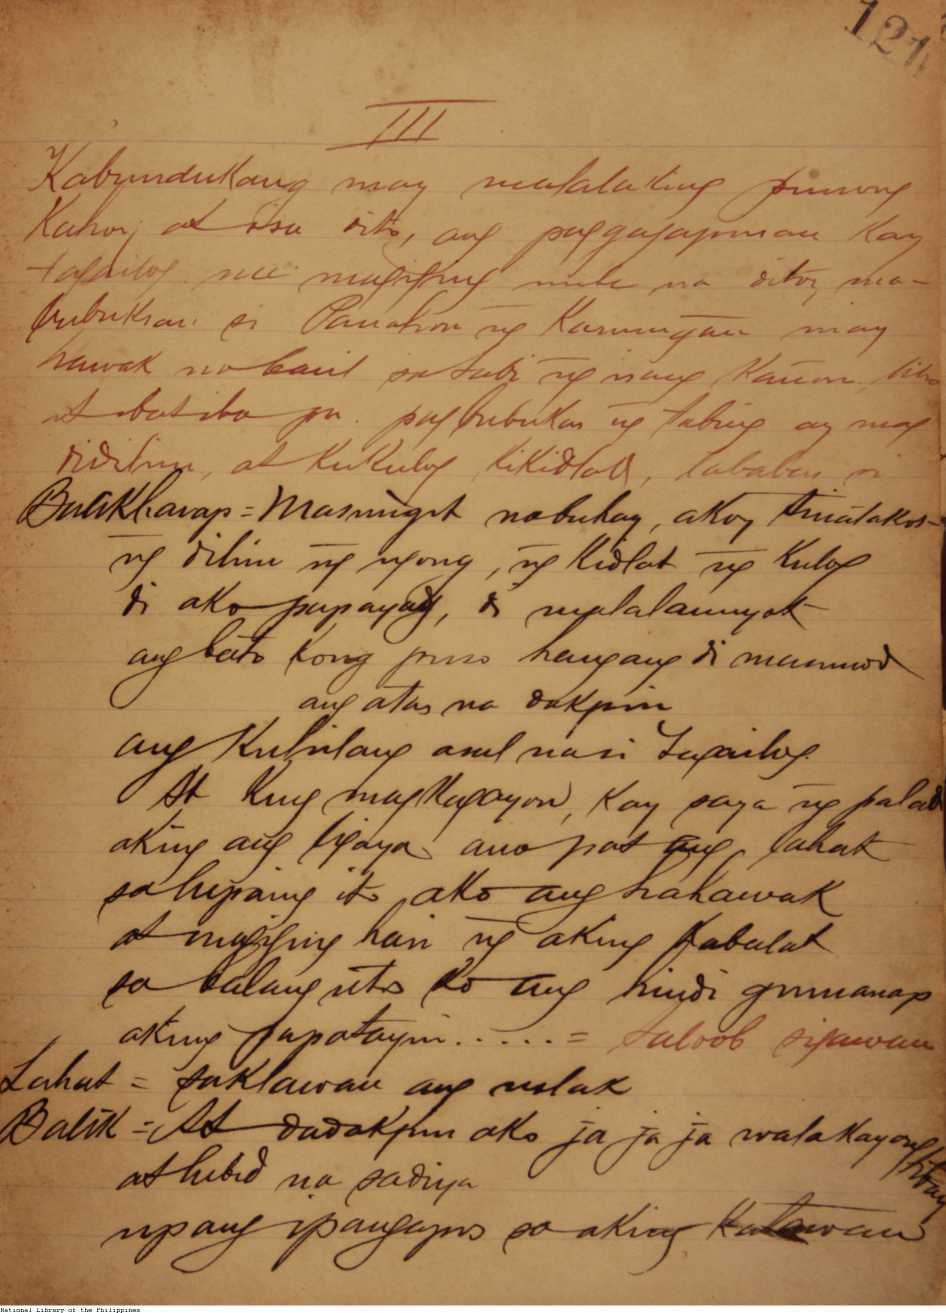 121
III
Kabundukang may malalaking punong
Kahoy at isa dito, ang paggagapusan kay
tagailog na magiging na ditoy ma-
bubuksan si Panahon ng Karunungan may
hawak na baril sa tabi ng isang Kanon
at ibat iba pa. pagbubukas ng tabing ay mag
didilim, at Kukulog Kikidlat, lalabas si
Balikharap = Masungit na buhay, akoy tinatakot
ng dilim ng ugong, ng Kidlat ng Kulog
di ako papayag, di malalamuyot
ang bato Kong puso hangang di masunod
ang atas na dakpin
ang Kubilang asal na si Tagailog.
At Kung magkagayon, Kay saya ng palad
aking ang ligaya ano pat ang lahat
sa lupaing ito ako ang hahawak
at magiging hari ng aking Kabalat
sa balang utos Ko ang hindi gumanap
aking papatayin...... = saloob sigawan
Lahat = saklawan ang ulak
Balik = At dadakpin ako ja ja ja wala kayong
at lubid na sadiya
upang ipangapus sa aking Katawan
National Library of the Philippines